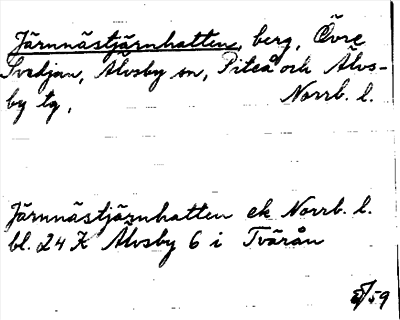 Järnnästjärnhatten, berg, Övre
Svedjan, Älvsby sn, Piteå och Älvs-
by tg, Norrb. l.
Järnnästjärnhatten ek Norrb. l.
bl. 24 K Älvsby 6 i Tvärån
/59